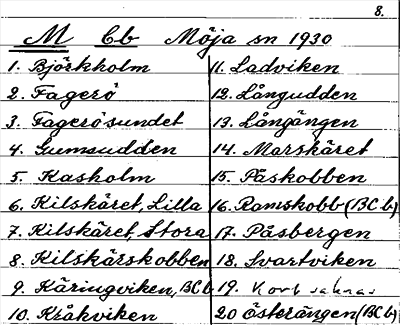 8.
M Cb Möja sn 1930
1. Björkholm
2. Fagerö
3. Fagerösundet
4. Gumsudden
5. Kasholm
6. Kilskäret, Lilla
7. Kilskäret, Stora
8. Kilskärskobben
9. Käringviken, BCb
10. Kråkviken
11. Ladviken
12. Långudden
13. Långängen
14. Marskäret
15. Påskobben
16. Ramskobb (BCb)
17. Påsbergen
18. Svartviken
19. Kort saknas
20 Österängen (BCb)